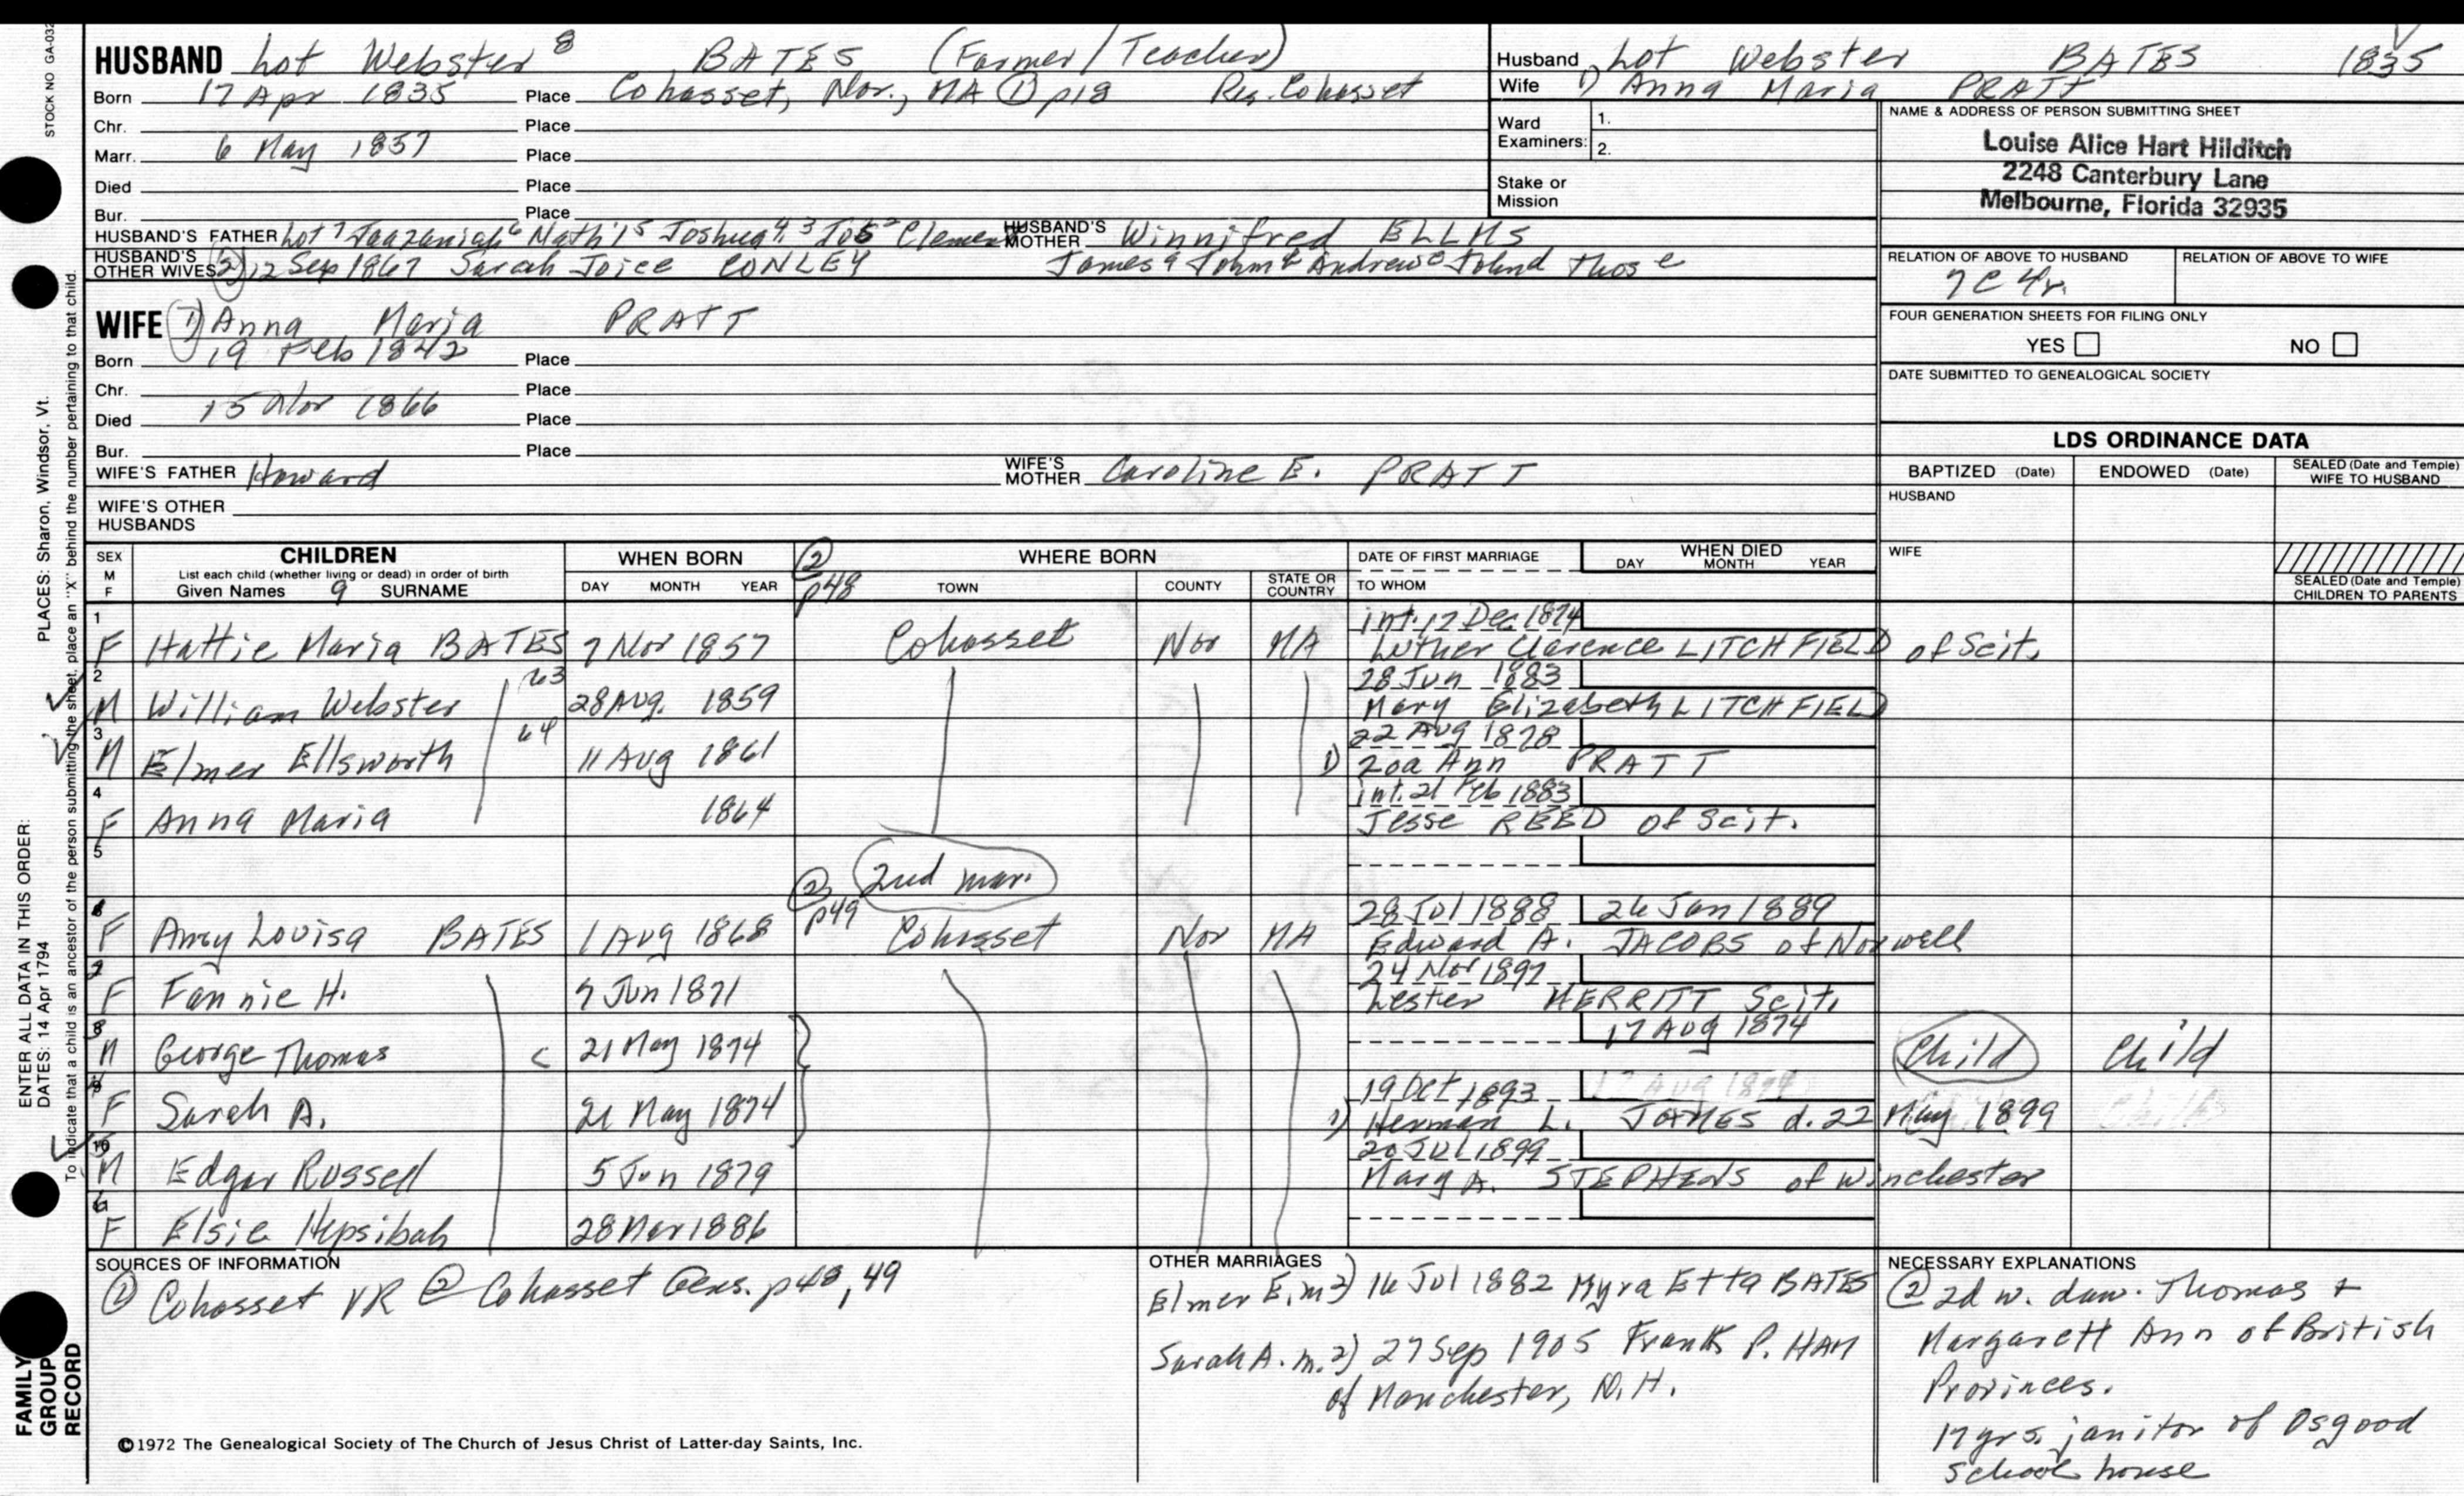 STOCK NO GA-032
HUSBAND Lot Webster 8 BATES (Farmer/Teacher)
Born 17 Apr 1835 Place Cohasset, Nor., MA ① p18 Res. Cohasset
Chr. Place
Marr. 6 May 1857 Place
Died Place
Bur. Place
HUSBAND'S FATHER Lot 7 Jaazaniah 6 Nath'l 5 Joshua 4, 3 Jos 2 Clement HUSBAND'S MOTHER Winnifred ELLMS
HUSBAND'S OTHER WIVES 2) 12 Sep 1867 Sarah Joice CONLEY James
Husband Lot Webster BATES 1835
Wife 1) Anna Maria PRATT
Ward Examiners: 1.
2.
Stake or Mission
NAME & ADDRESS OF PERSON SUBMITTING SHEET
Louise Alice Hart Hilditch
2248 Canterbury Lane
Melbourne, Florida 32935
RELATION OF ABOVE TO HUSBAND RELATION OF ABOVE TO WIFE
7C 4r.
FOUR GENERATION SHEETS FOR FILING ONLY
YES NO
DATE SUBMITTED TO GENEALOGICAL SOCIETY
WIFE 1) Anna Maria PRATT
Born 19 Feb 1842 Place
Chr. Place
Died 15 Nov 1866 Place
Bur. Place
WIFE'S FATHER Howard WIFE'S MOTHER Caroline E. PRATT
WIFE'S OTHER HUSBANDS
LDS ORDINANCE DATA
BAPTIZED (Date) ENDOWED (Date) SEALED (Date and Temple) WIFE TO HUSBAND
HUSBAND
WIFE
SEALED (Date and Temple) CHILDREN TO PARENTS
SEX M F CHILDREN WHEN BORN ② p48 WHERE BORN DATE OF FIRST MARRIAGE WHEN DIED
List each child (whether living or dead) in order of birth
Given Names 9 SURNAME DAY MONTH YEAR TOWN COUNTY STATE OR COUNTRY TO WHOM DAY MONTH YEAR
1 int. 17 Dec 1874
F Hattie Maria BATES 7 Nov 1857 Cohasset Nor MA Luther Clarence LITCHFIELD of Scit.
2 63 28 Jun 1883
M William Webster 28 Aug. 1859 Mary Elizabeth LITCHFIELD
3 64 22 Aug 1878
M Elmer Ellsworth 11 Aug 1861 1) Zoa Ann PRATT
4 int. 21 Feb 1883
F Anna Maria 1864 Jesse REED of Scit.
5 2nd mar.
② p49 28 Jul 1888 26 Jan 1889
F Amy Louisa BATES 1 Aug 1868 Cohasset Nor MA Edward A. JACOBS of Norwell
24 Nov 1897
F Fannie H. 7 Jun 1871 Lester MERRITT Scit.
17 Aug 1874
M George Thomas C 21 May 1874 Child Child
19 Oct 1893
F Sarah A. 21 May 1874 1) Herman L. JAMES d. 22 May 1899
10 20 Jul 1899
M Edgar Russell 5 Jun 1879 Mary A. STEPHENS of Winchester
F Elsie Hepsibah 28 Mar 1886
SOURCES OF INFORMATION
① Cohasset VR ② Cohasset Gens. p48, 49
OTHER MARRIAGES
Elmer E. m 2) 16 Jul 1882 Myra Etta BATES
Sarah A. m. 2) 27 Sep 1905 Frank P. HAM
of Manchester, N.H.
NECESSARY EXPLANATIONS
② 2d w. dau. Thomas +
Margarett Ann of British
Provinces.
17 yrs. janitor of Osgood
School house
©1972 The Genealogical Society of The Church of Jesus Christ of Latter-day Saints, Inc.
FAMILY GROUP RECORD
ENTER ALL DATA IN THIS ORDER:
DATES: 14 Apr 1794
PLACES: Sharon, Windsor, Vt.
To indicate that a child is an ancestor of the person submitting the sheet, place an "X" behind the number pertaining to that child.